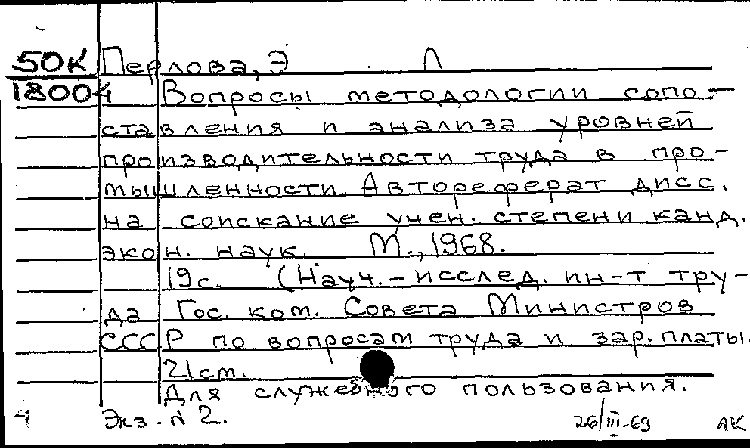 50К Перлова, Э Л
18004 Вопросы методологии сопо-
ставления и анализа уровней
производительности труда в про-
мышленности. Автореферат дисс.
на соискание учен. степени канд.
экон. наук. М., 1968.
19с. (Науч.-исслед. ин-т тру-
да Гос. ком. Совета Министров
СССР по вопросам труда и зар.платы.
21см.
Для служебного пользования.
4 Экз. N 2. 26/III-69 АК